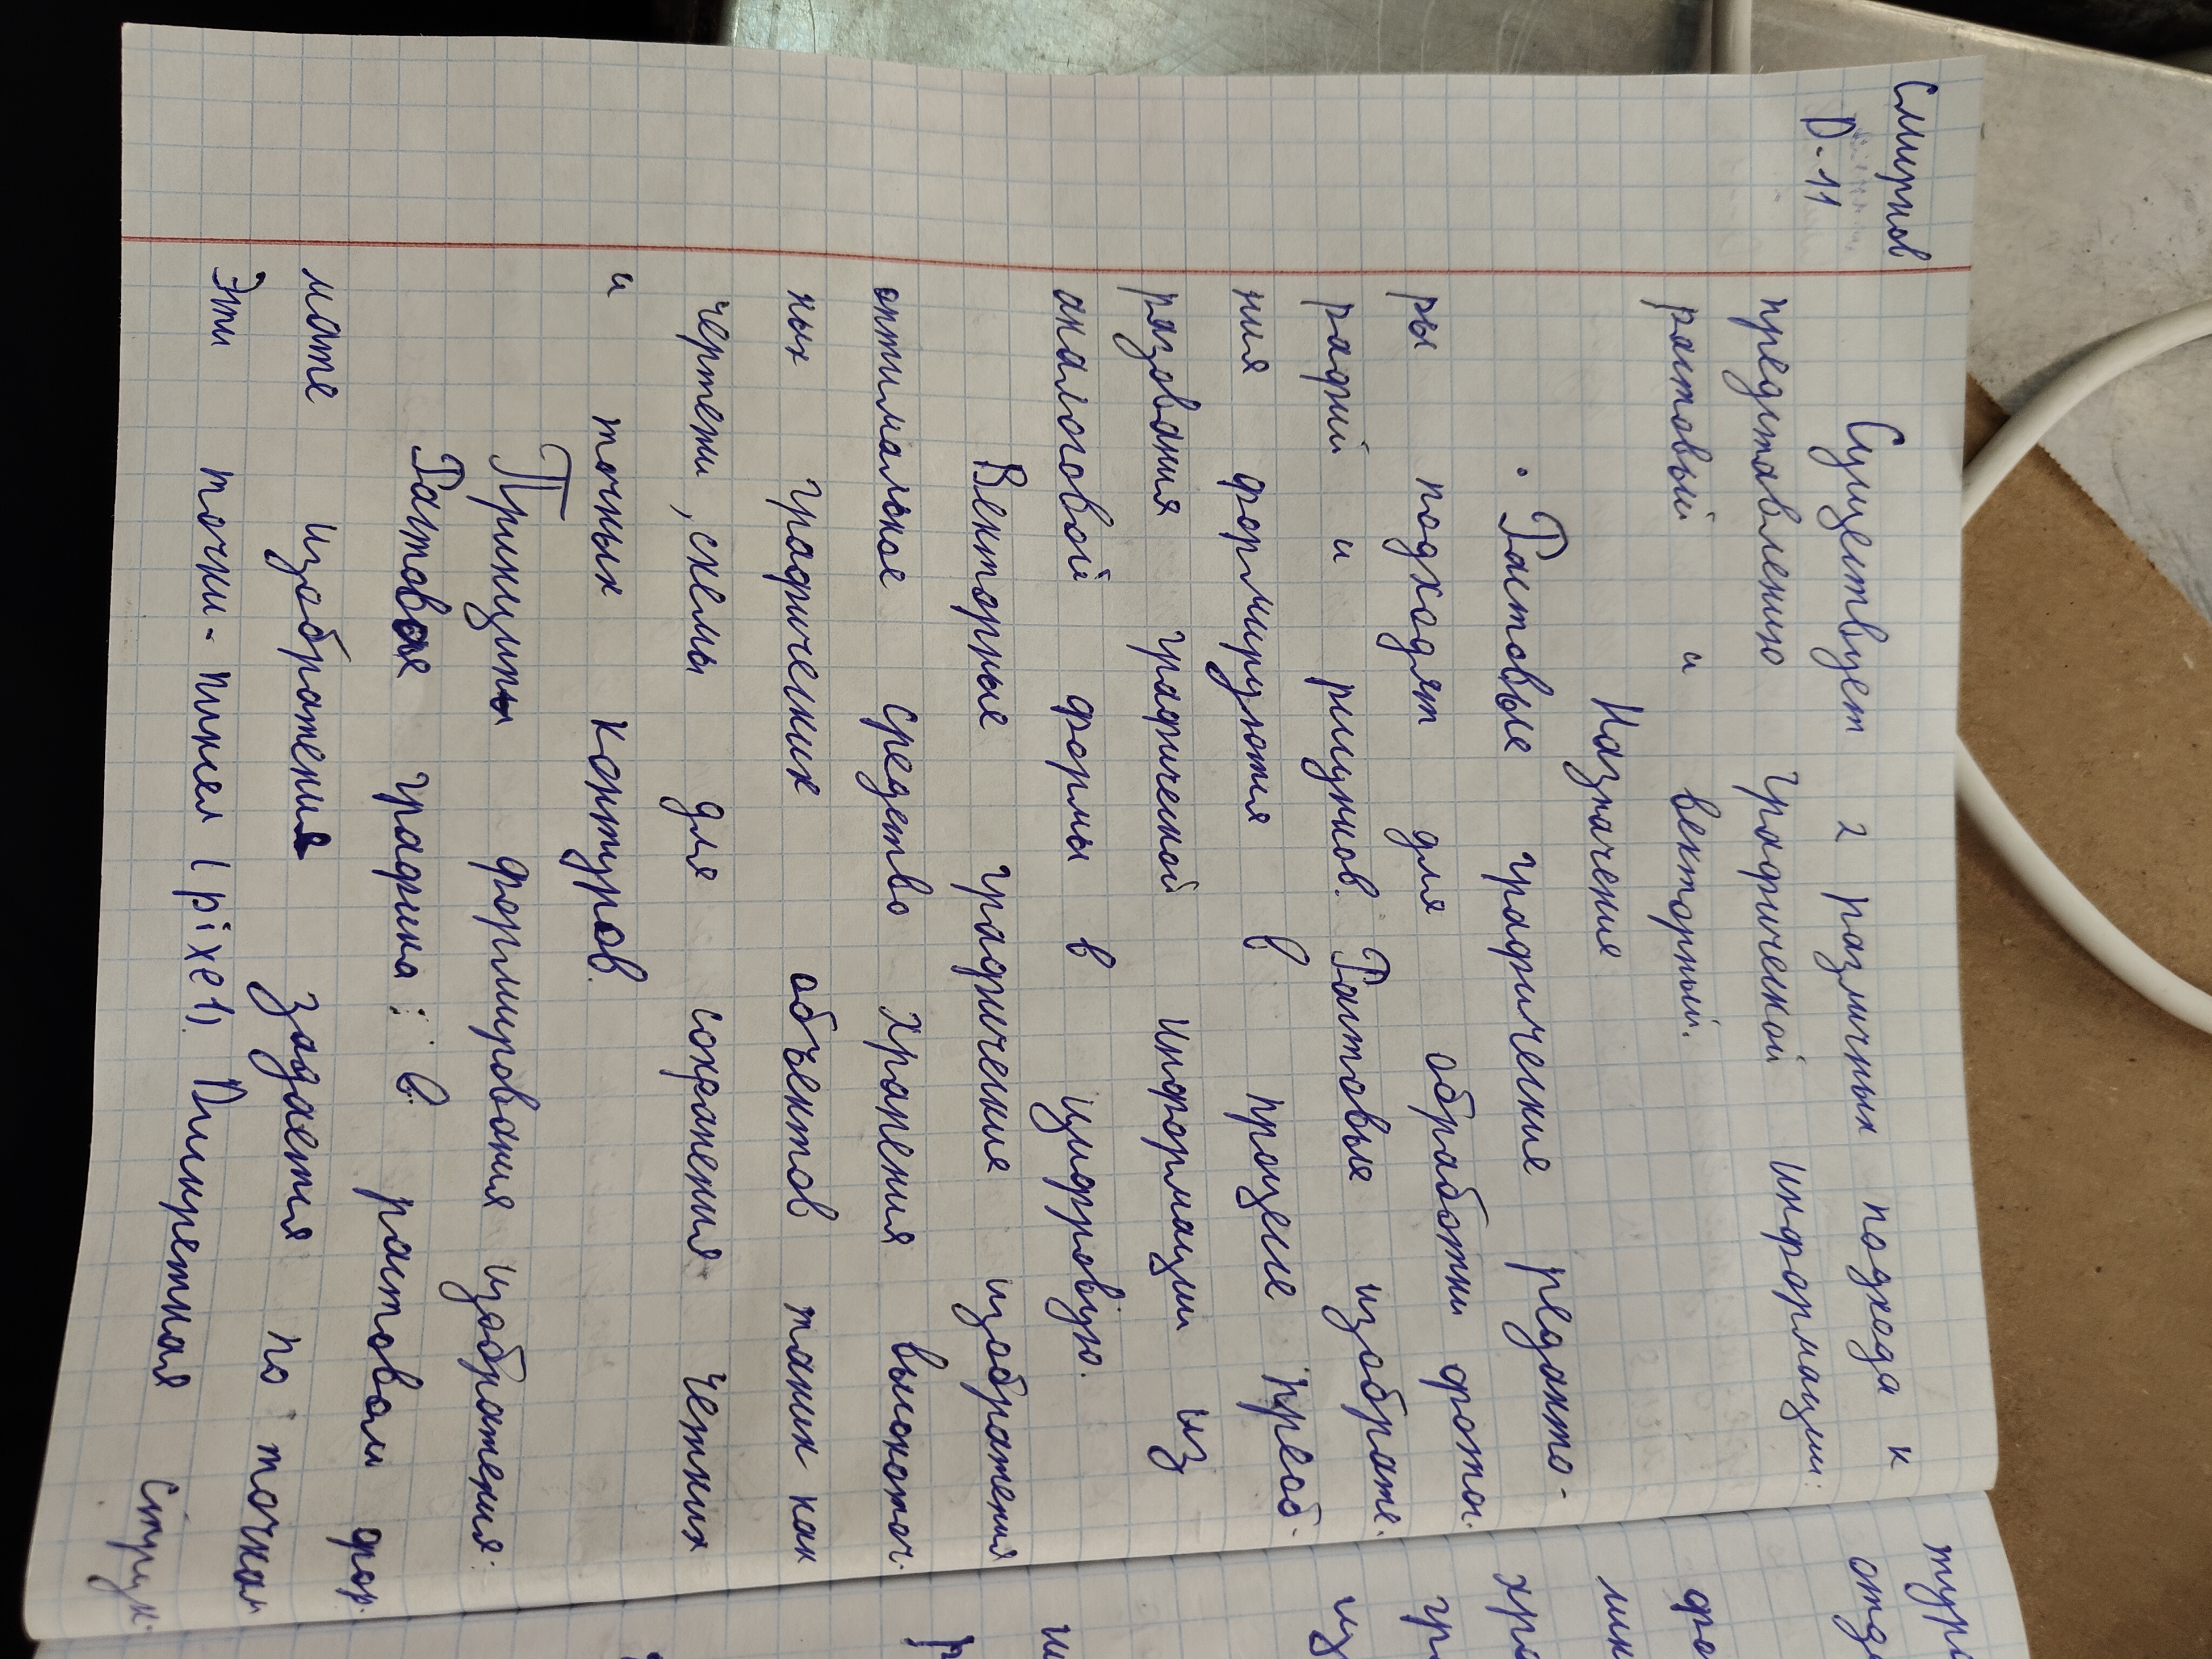 Смирнов
D-11
Существует 2 различных подхода к
представлению графической информации:
растовый и векторный.
Назначение
• Растовые графические редакто-
ры подходят для обработки фотог.
рафий и рисунков. Растовые изображе.
ния формируются в процессе преоб-
разования графической информации из
аналоговой формы в цифровую.
Векторные графические изображения
оптимальное средство хранения высокоточ.
ных графических объектов таких как
чертежи, схемы для сохранения четких
и точных контуров.
Принципы формирования изображения:
Растовая графика: В растовом фор.
мате изображения задается по точкам
Эти точки - пиксел (pixel). Дискретная струк.
тура